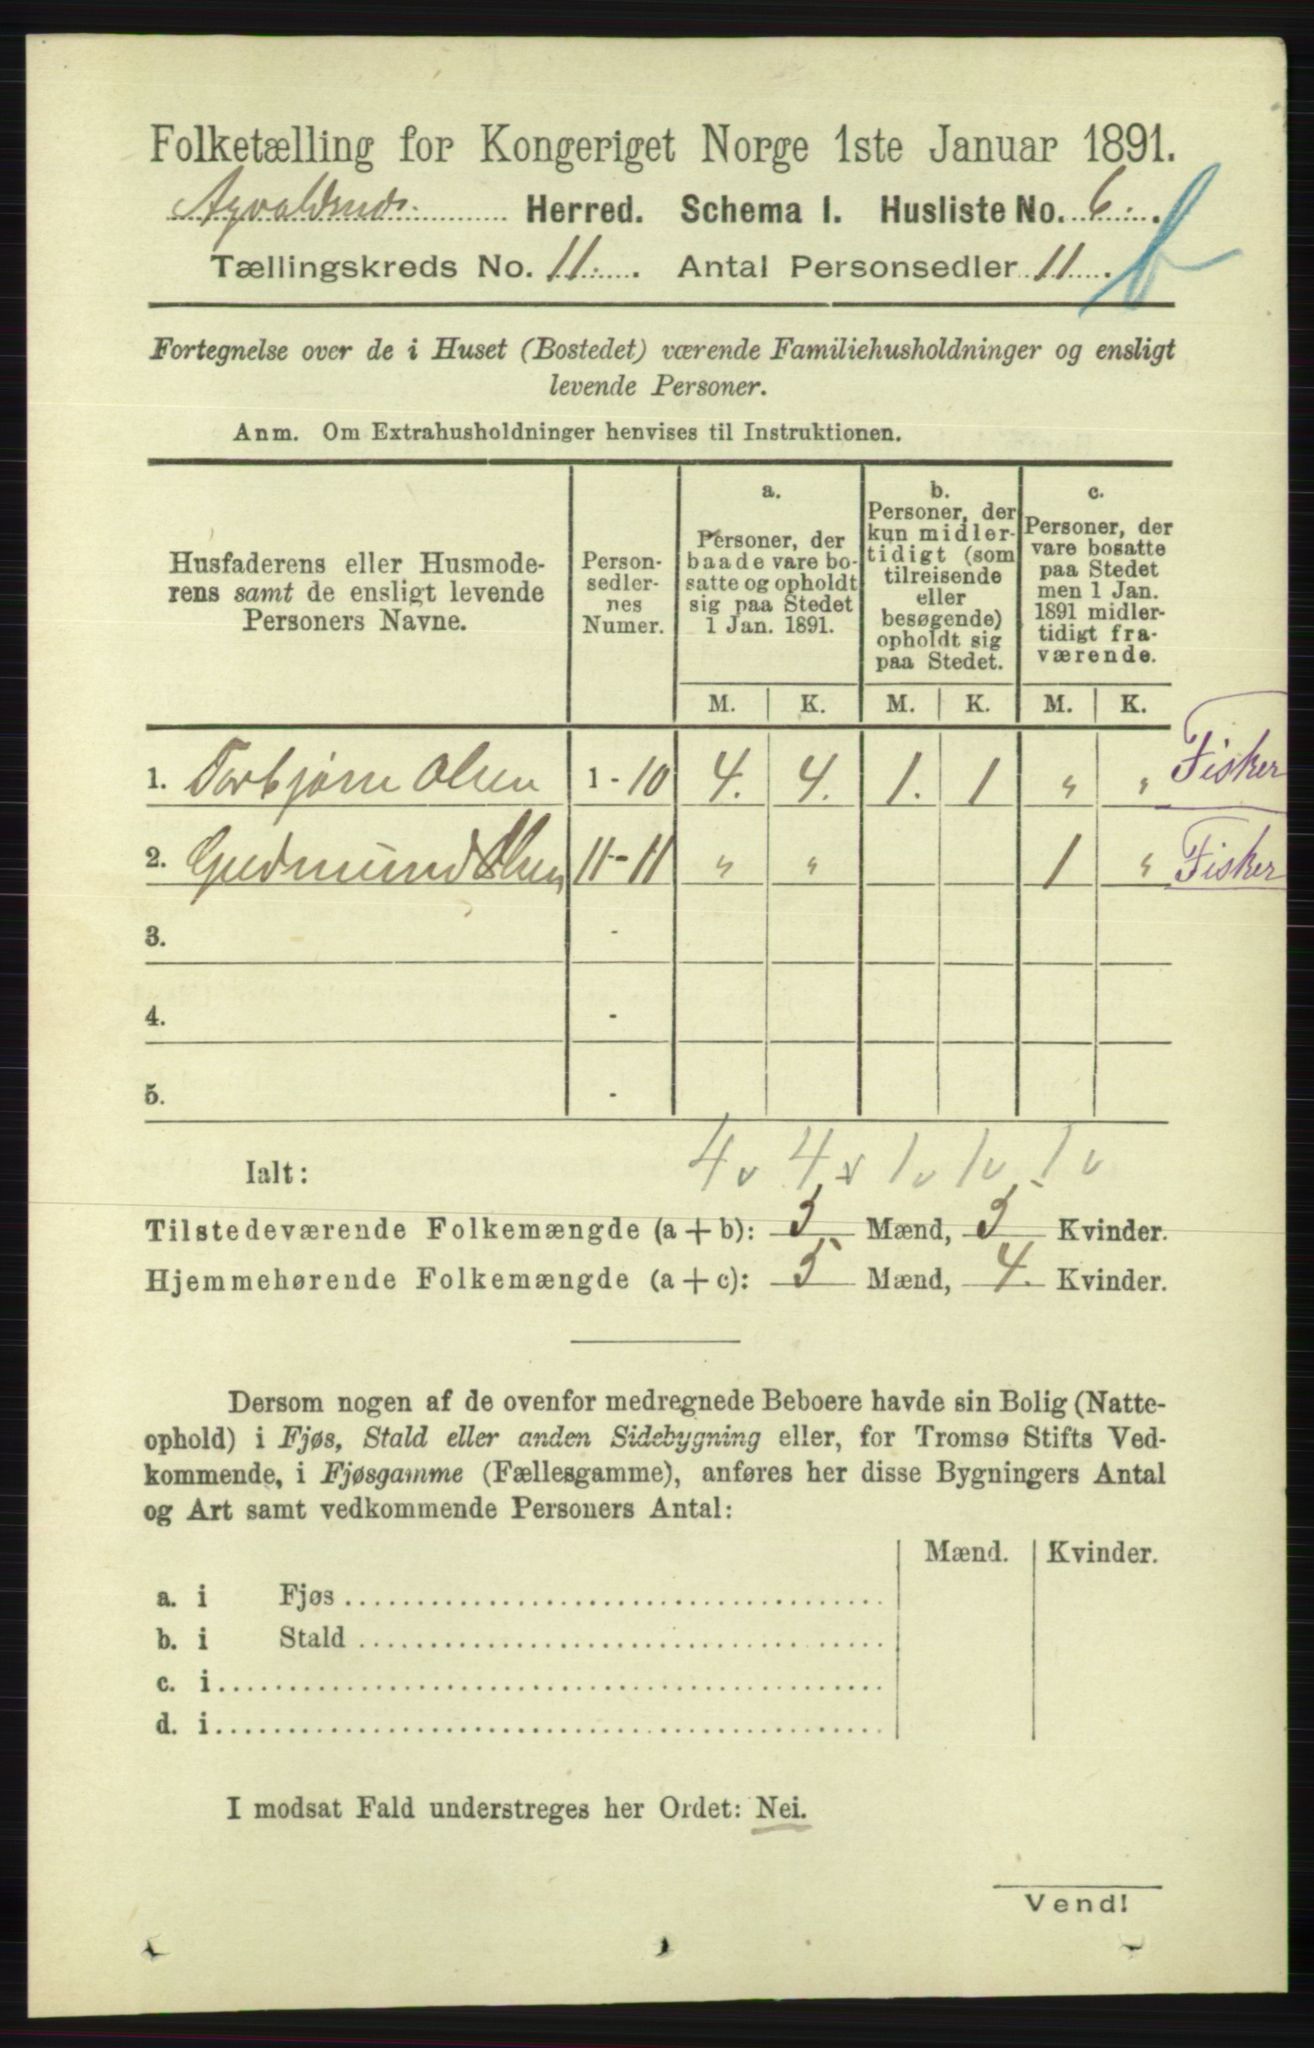 Folketælling for Kongeriget Norge 1ste Januar 1891.
Herred. Schema I. Husliste No. 6.
Tællingskreds No. 11. Antal Personsedler 11.
Fortegnelse over de i Huset (Bostedet) værende Familiehusholdninger og ensligt
levende Personer.
Anm. Om Extrahusholdninger henvises til Instruktionen.
Husfaderens eller Husmode-
rens samt de ensligt levende
Personers Navne.
Person-
sedler-
nes
Numer.
a.
Personer, der
baade vare bo-
satte og opholdt
sig paa Stedet
1 Jan. 1891.
b.
Personer, der
kun midler-
tidigt (som
tilreisende
eller
besøgende)
opholdt sig
paa Stedet.
c.
Personer, der
vare bosatte
paa Stedet
men 1 Jan.
1891 midler-
tidigt fra-
værende.
M. K. M. K. M. K.
1. Torbjørn Olsen 1 - 10 4. 4. 1. 1 " " Fisker
2. Gudmund Olsen 11 - 11 " " 1 " Fisker
3. -
4. -
5. -
Ialt: 4 4 1 1 1
Tilstedeværende Folkemængde (a + b): 5 Mænd, 5 Kvinder.
Hjemmehørende Folkemængde (a + c): 5 Mænd, 4. Kvinder.
Dersom nogen af de ovenfor medregnede Beboere havde sin Bolig (Natte-
ophold) i Fjøs, Stald eller anden Sidebygning eller, for Tromsø Stifts Ved-
kommende, i Fjøsgamme (Fællesgamme), anføres her disse Bygningers Antal
og Art samt vedkommende Personers Antal:
Mænd. Kvinder.
a. i Fjøs
b. i Stald
c. i
d. i
I modsat Fald understreges her Ordet: Nei.
Vend!